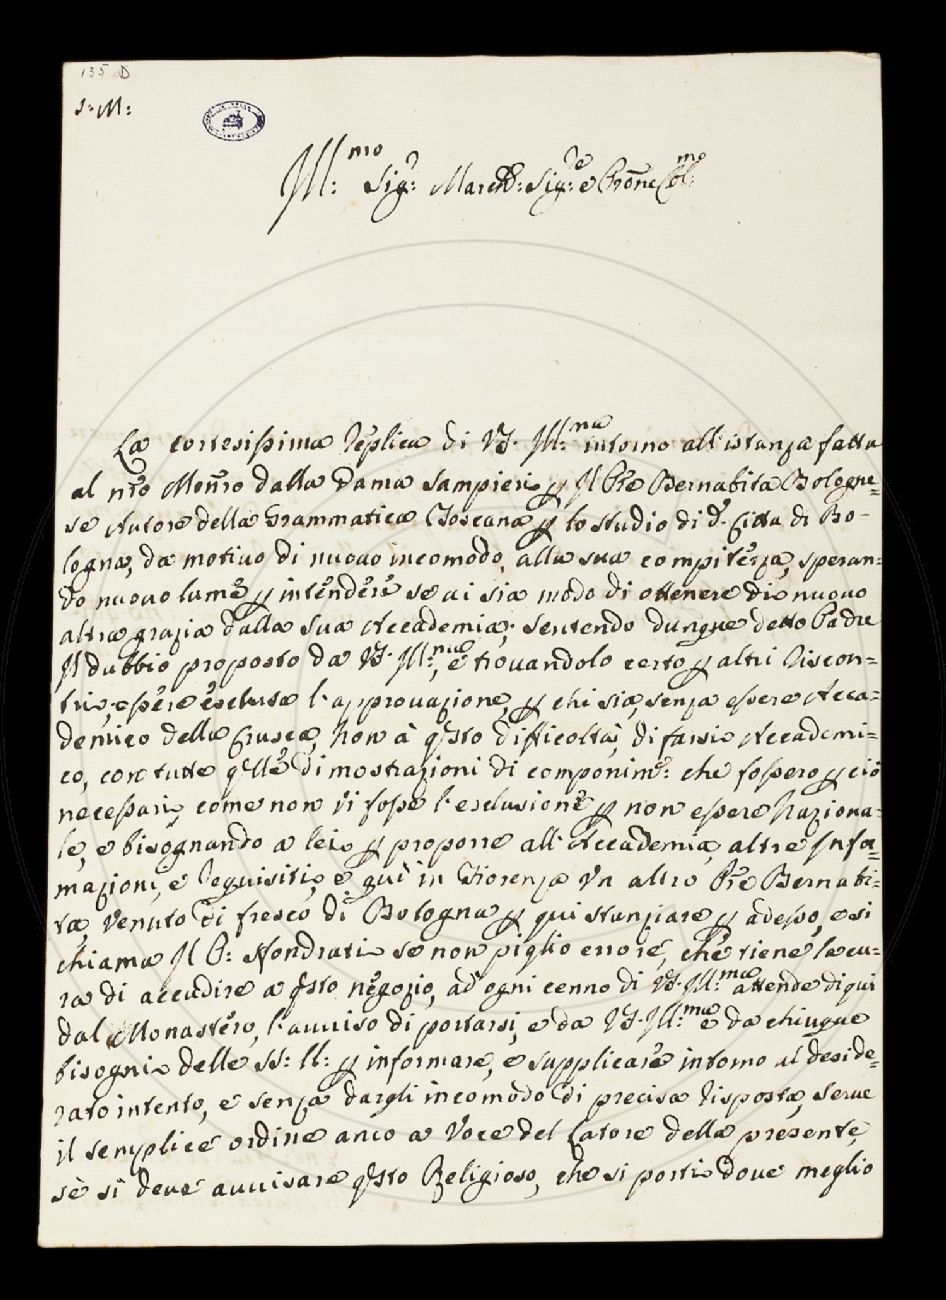 135 D
J: M:
Ill:mo Sig:r March: Sig:re e Prōne Col:mo
La cortesissima Replica di VS. Ill:ma intorno all'istanza fatta
al nr̃o Monr̃o dalla Dama Sampieri, p Il Pr̃e Bernabita Bologne=
se Autore della Grammatica Toscana p lo studio di d.a Citta di Bo-
logna, da motivo di nuovo incomodo, alla sua compitezza, speran=
do nuovo lume p intendere se vi sia modo di ottenere di nuovo
altra grazia dalla sua Accademia; sentendo dunque detto Padre
Il dubbio proposto da VS. Ill:ma, e trovandolo certo p altri Riscon=
tri, essere esclusa l'approvazione, p chi sia, senza essere Acca=
demico della Crusca, Non à q̃sto difficoltà, di farsi Accademi=
co, con tutte q̃lle dimostrazioni di componim:ti che fossero p ciò
necessari, come non vi fosse l'esclusione p non essere Naziona=
le, e bisognando a lei p proporre all'Accademia, altre Infor=
mazioni, e Requisiti, è quì in Fiorenza Vn altro Pr̃e Bernabi=
ta Venuto di fresco di Bologna p qui stanziare p adesso, e si
chiama Il P: Sfondrati se non piglio errore, che tiene la cu=
ra di accudire a q̃sto negozio, ad ogni cenno di VS. Ill:ma attende di qui
dal Monastero, l'avviso di portarsi, e da VS. Ill:ma e da chiunque
bisogni delle SS: LL: p informare, e supplicare intorno al deside=
rato intento, e senza dargli incomodo di precisa risposta, serve
il semplice ordine anco a Voce del Latore della presente,
se si deve avvisare q̃sto Religioso, che si porti dove meglio